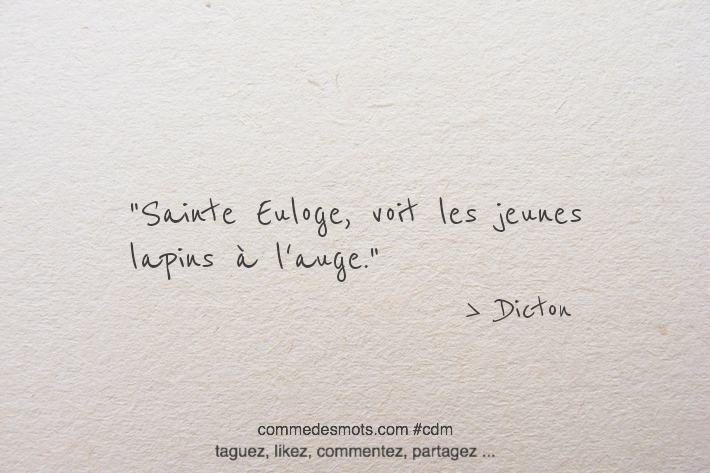 "Sainte Euloge, voit les jeunes
lapins à l'auge."
> Dicton
commedesmots.com #cdm
taguez, likez, commentez, partagez ...